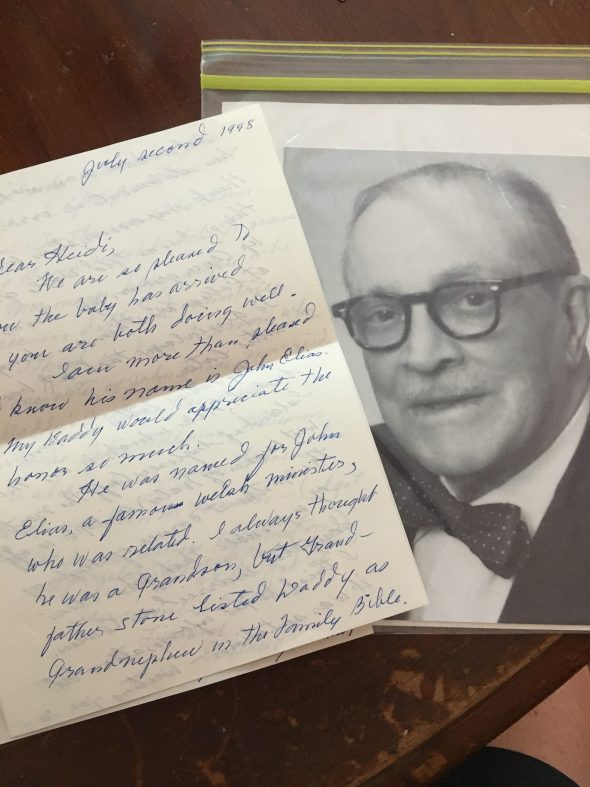 July second 1998
Dear Heidi,
We are so pleased to
the baby has arrived
you are both doing well.
I am more than pleased
know his name is John Elias.
My Daddy would appreciate the
honor so much.
He was named for John
Elias, a famous Welsh minister,
who was related. I always thought
he was a Grandson, but Grand-
father Stone listed Daddy as
Grandnephew in the Family Bible.